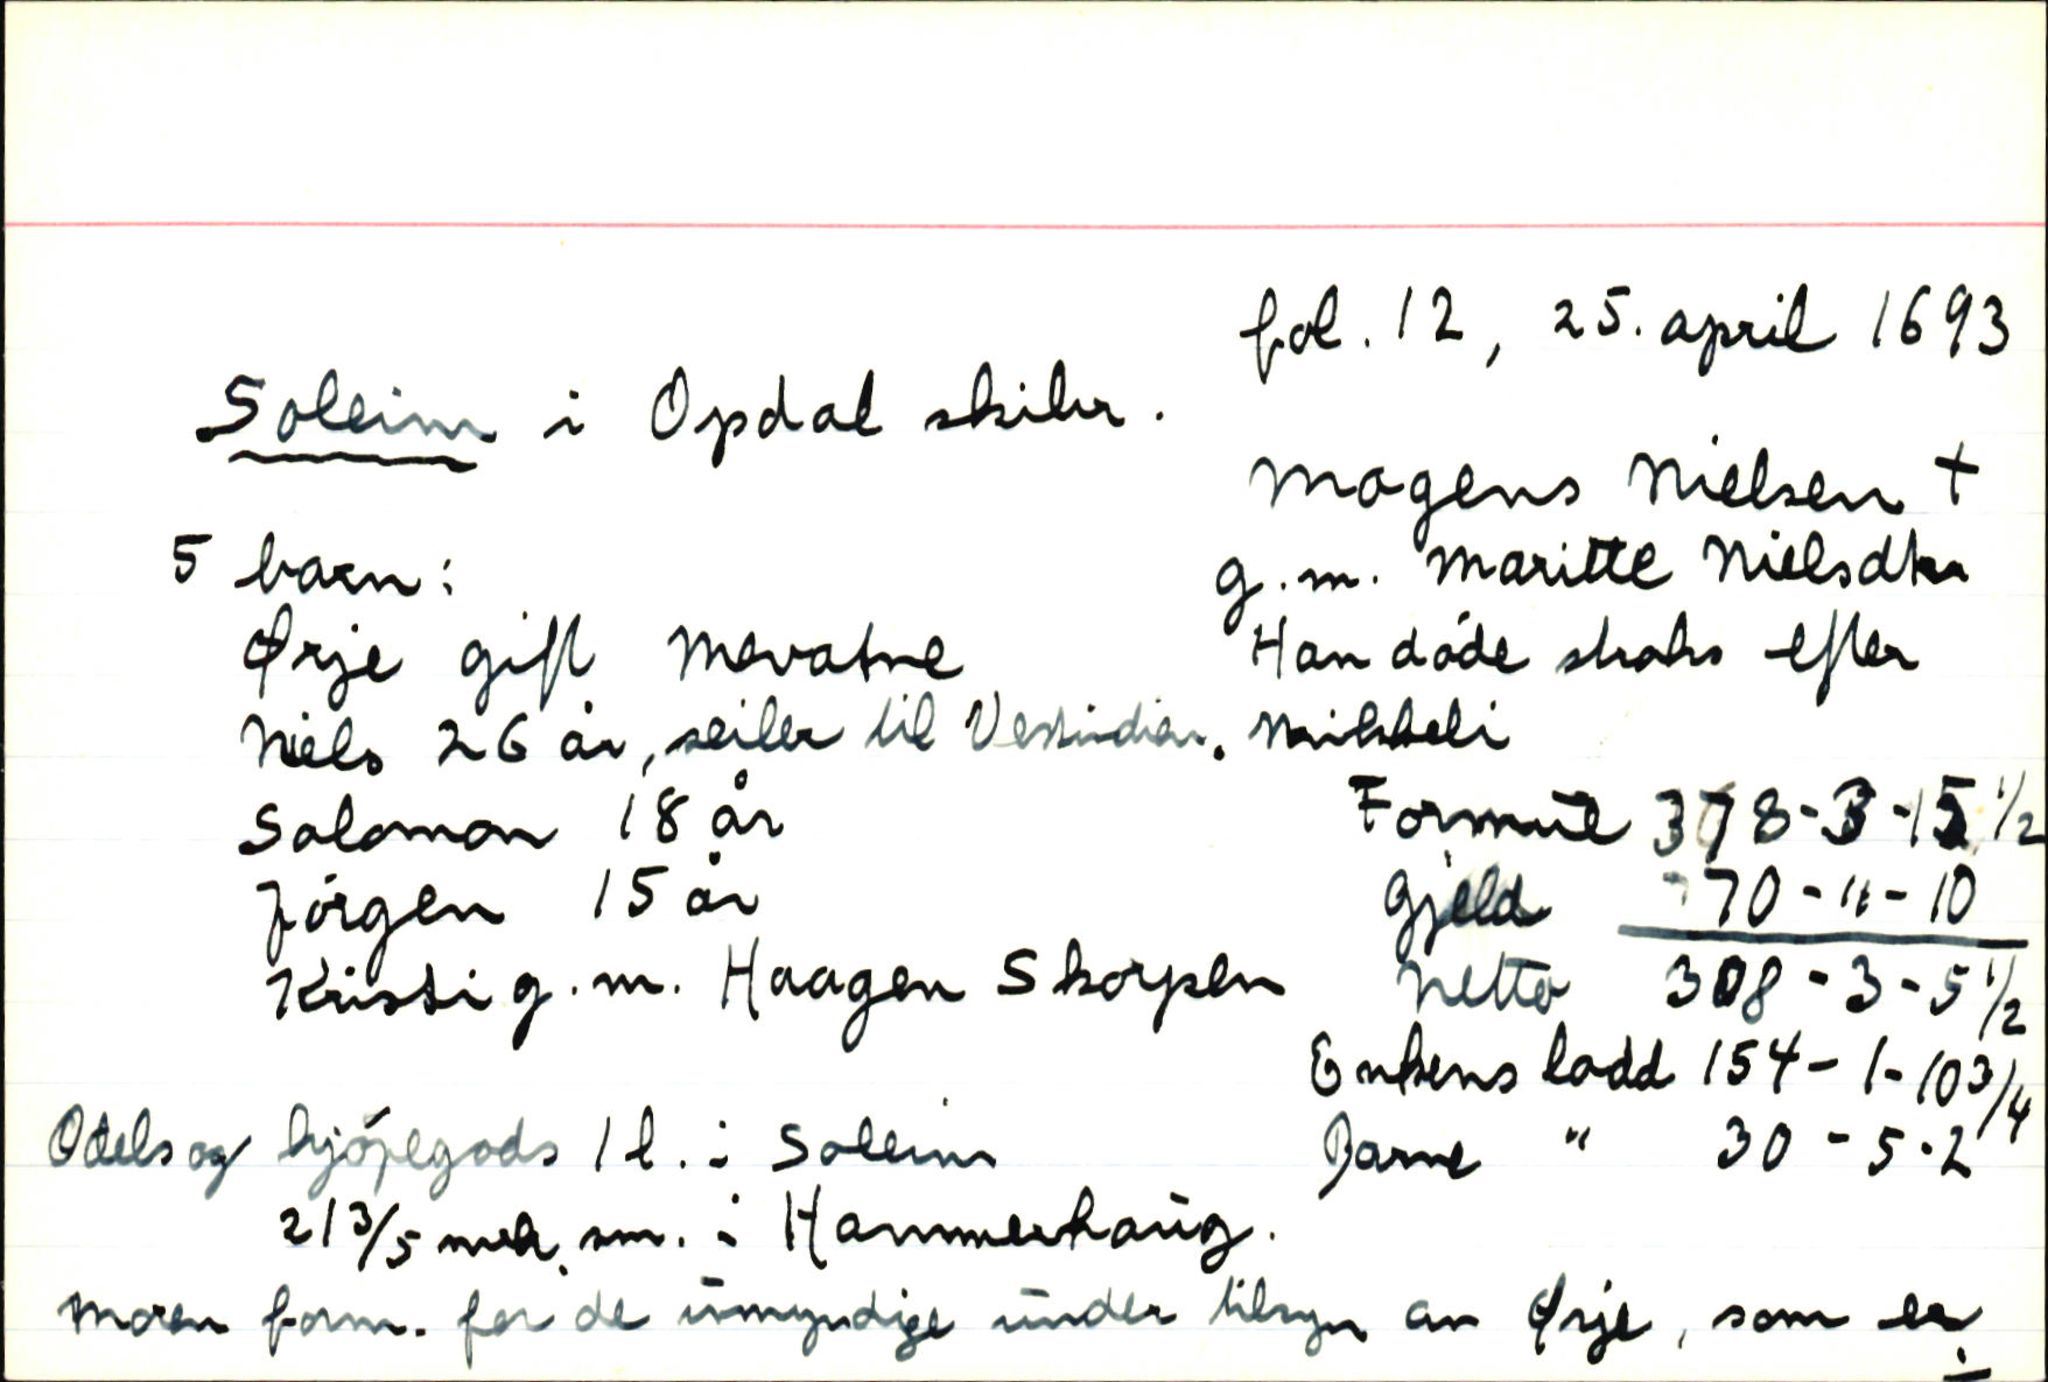 fol. 12, 25. april 1693
Soleim i Opdal skibr.
Mogens Nielsen +
g.m. Maritte Nielsdtr
5 barn:
Ørje gift Mevatne
Han døde straks efter
Niels 26 år, seiler til Vestindien.
Mikkeli
Salomon 18 år
Jörgen 15 år
Kristi g.m. Haagen Skorpen
Formue 378-3-15 1/2
Gjeld 70-"-10
Netto 308-3-5 1/2
Enkens lodd 154-1-10 3/4
Barne " 30-5-2
Odels og kjöpegods 1 l. i Soleim
21 3/5 mrk. sm. i Hammerhaug.
Moren form. for de umyndige under tilsyn av Ørje, som er